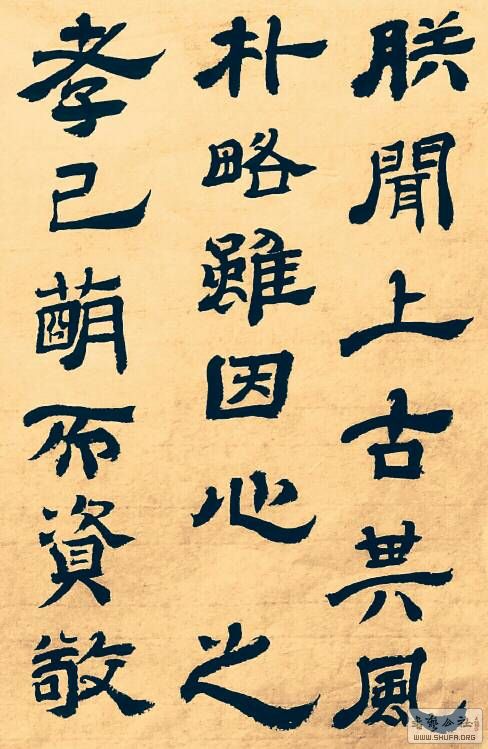 朕聞上古其風
朴略雖因心之
孝已萌而資敬
WWW.SHUFA.ORG